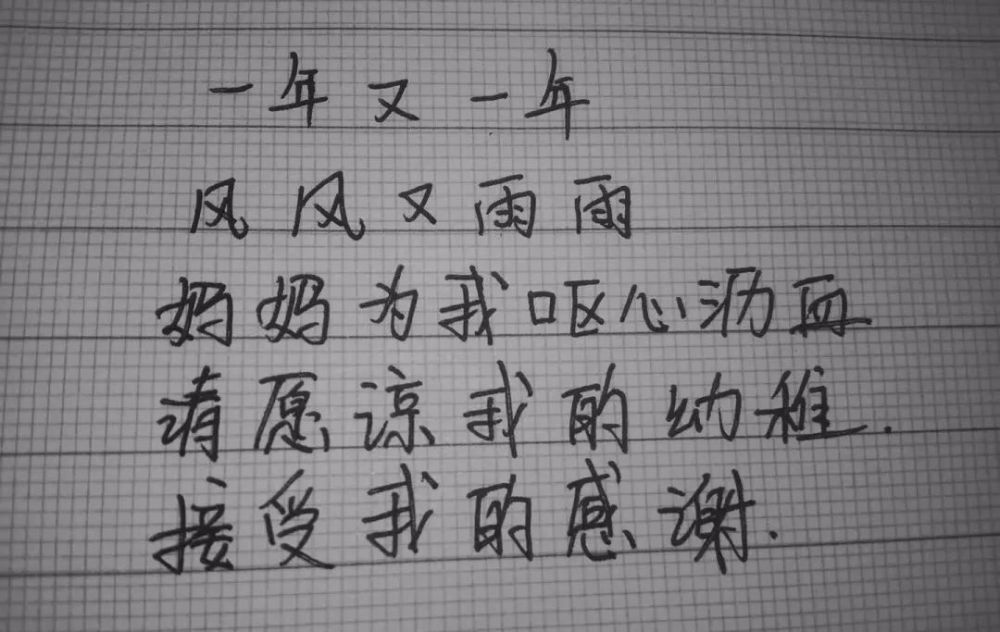 一年又一年
风风又雨雨
妈妈为我呕心沥血
请愿谅我的幼稚.
接受我的感谢.